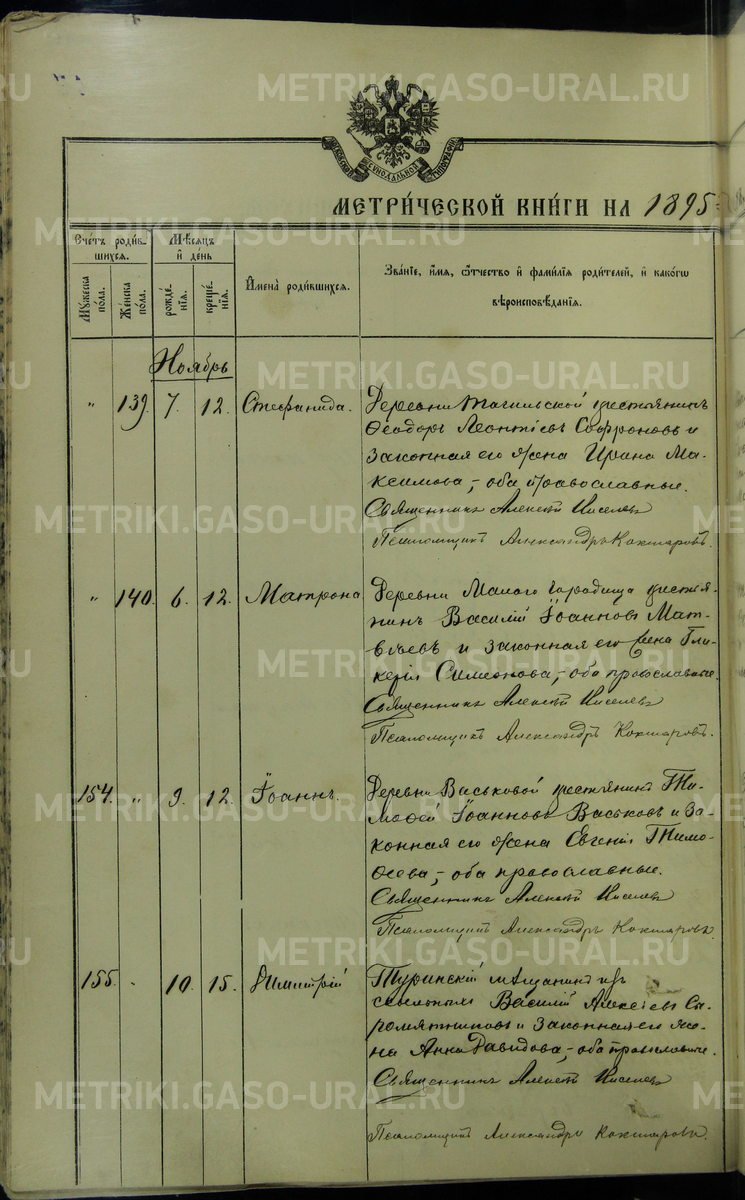 МЕТРИ́ЧЕСКОЙ КНИ́ГИ НА 1895
Сче́тъ роди́в-
шихся.
Мѣ́сяцъ
и҆ день
Мꙋжеска
пола.
Же́нска
по́ла.
рожде́-
нїѧ.
креще́-
нїѧ.
И҆мена̀ роди́вшихся.
Зва́нїе, и҆́мѧ, ѻ҆́тчество и҆ фами́лїѧ роди́телей, и҆ како́гѡ
вѣроисповѣ́данїѧ.
Ноябрь
" 139. 7. 12. Стефанида.
Деревни Тагильской крестьянинъ
Ѳеодоръ Леонтіевъ Софроновъ и
законная его жена Ирина Ма-
ксимова,- оба православные.
Священникъ Алексѣй Киселевъ
Псаломщикъ Александръ Кокшаровъ.
" 140. 6. 12. Матрона
Деревни Малого Городища крестья-
нинъ Василій Іоанновъ Мат-
вѣевъ и законная его жена Гли-
керія Симеонова,- оба православные.
Священникъ Алексѣй Киселевъ
Псаломщикъ Александръ Кокшаровъ.
154. " 9. 12. Іоаннъ.
Деревни Васьковой крестьянинъ Ти-
моѳей Іоанновъ Васьковъ и за-
конная его жена Евгенія Тимо-
ѳеева,- оба православные.
Священникъ Алексѣй Киселевъ
Псаломщикъ Александръ Кокшаровъ.
155. " 10. 15. Димитрій
Туринскій мѣщанинъ изъ
ссыльныхъ Василій Алексѣевъ Сы-
ромятниковъ и законная его же-
на Анна Давидова,- оба православные.
Священникъ Алексѣй Киселевъ
Псаломщикъ Александръ Кокшаровъ.
METRIKI.GASO-URAL.RU